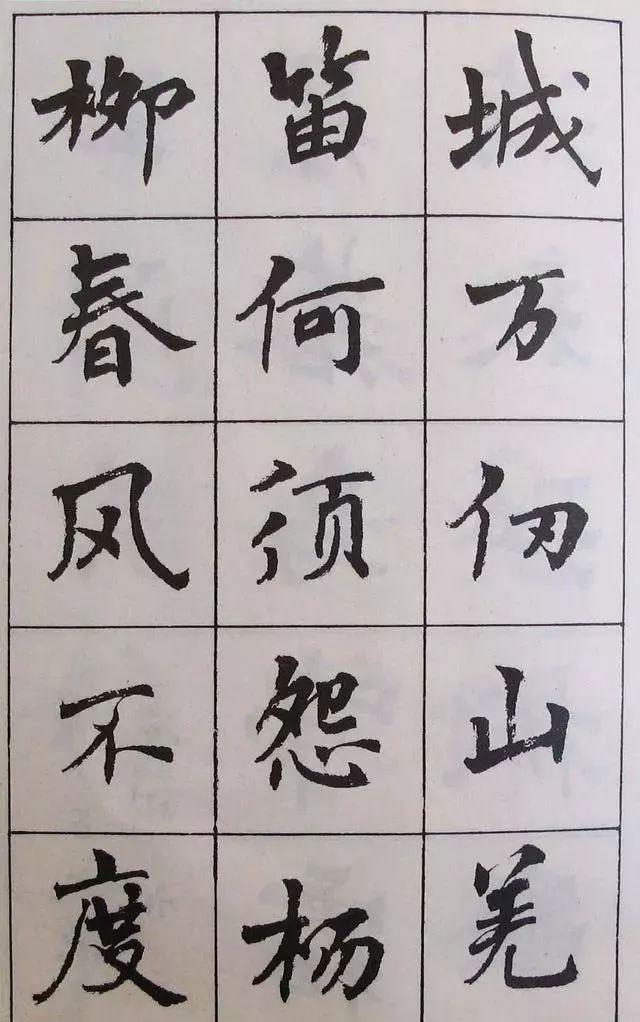 城万仞山羌
笛何须怨杨
柳春风不度